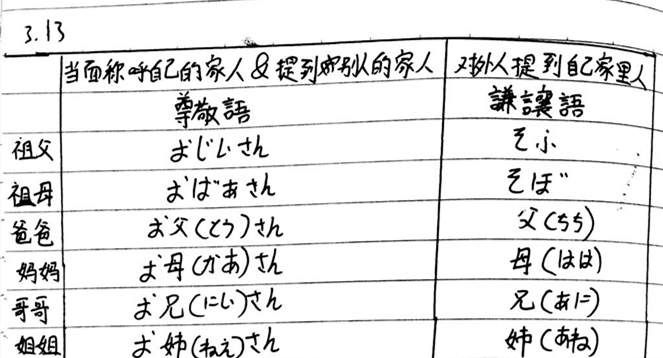 3.13
当面称呼自己的家人&提到别人的家人 对外人提到自己家里人
尊敬語 謙譲語
祖父 おじいさん そふ
祖母 おばあさん そぼ
爸爸 お父(とう)さん 父(ちち)
妈妈 お母(かあ)さん 母(はは)
哥哥 お兄(にい)さん 兄(あに)
姐姐 お姉(ねえ)さん 姉(あね)